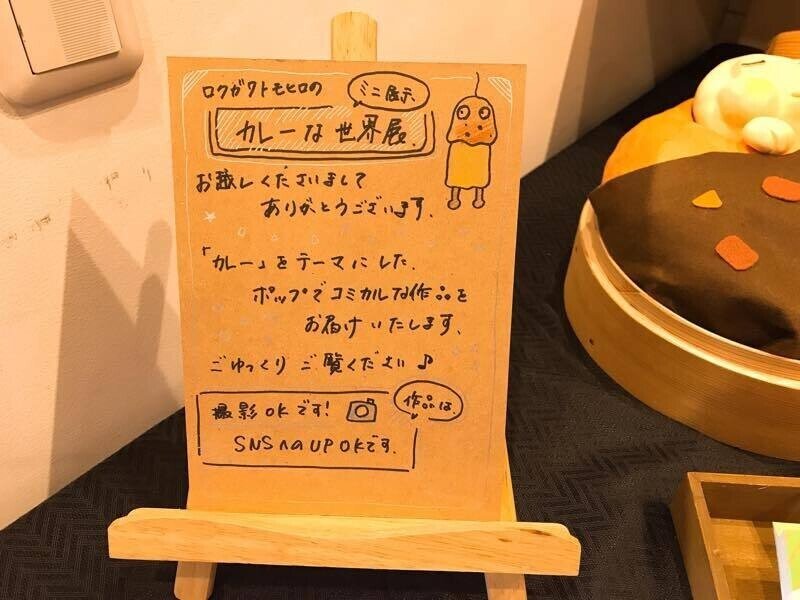 ロクガワトモヒロの
ミニ展示
カレーな世界展.
お越しくださいまして
ありがとうございます.
「カレー」をテーマにした.
ポップでコミカルな作品を
お届けいたします.
ごゆっくりご覧ください♪
作品は.
撮影OKです!
SNSへのUPOKです.